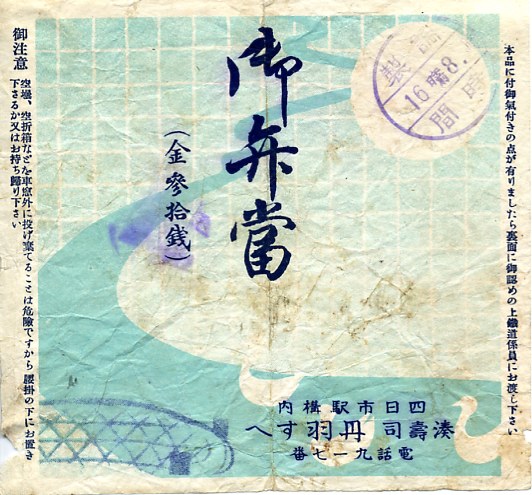 本品に付御氣付きの点が有りましたら裏面に御認めの上鐵道係員にお渡し下さい
製
16 8.
時間
御弁當
(金參拾錢)
四日市駅構内
湊壽司 丹羽すへ
電話九一七番
御注意
空壜、空折箱などを車窓外に投げ棄てることは危險ですから腰掛の下にお置き
下さるか又はお持ち歸り下さい